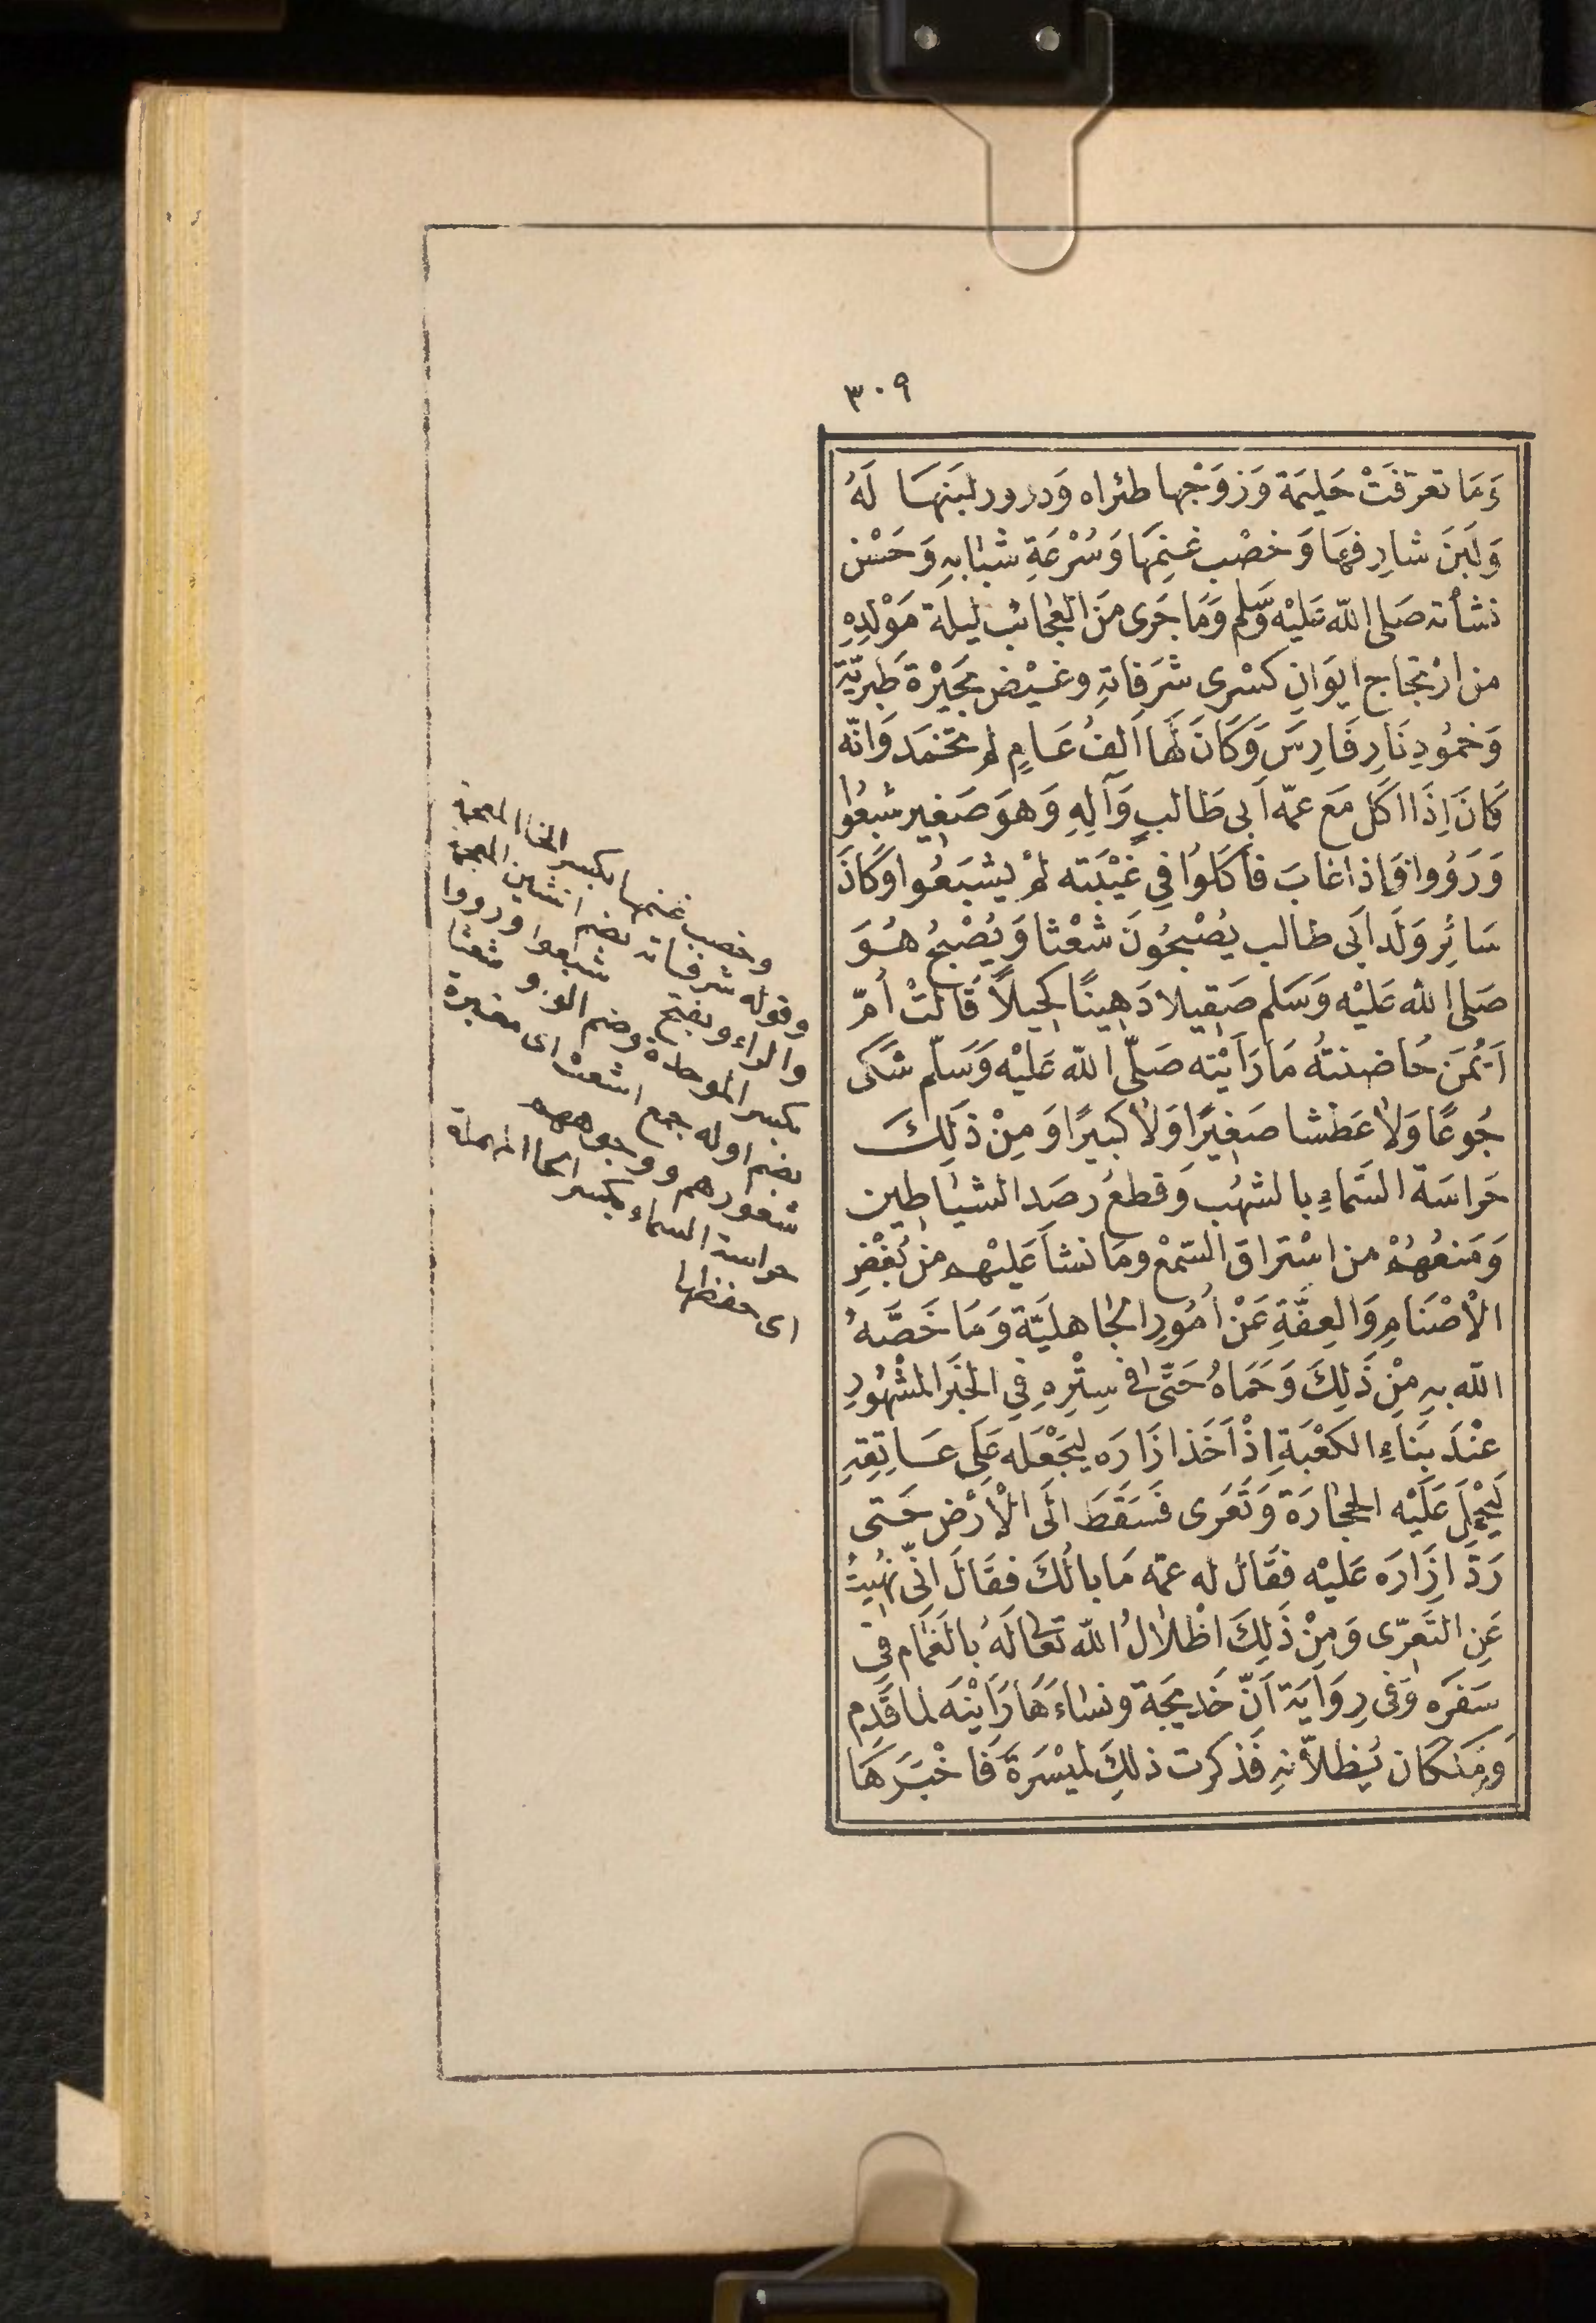 ٣٠٩
وَمَا تعرّفَتْ حَليمَة وَزوَجْها ظئراه وَدرور لبَنهَا لَهُ
وَلَبَنَ شارِفِهَا وَخصْب غنِمَهَا وَسُرْعَةِ شبَابهِ وَحَسْن
نشأته صَلى الله عَليْه وَسَّلم وَمَا جَرى مَن العجَائب ليلة مَوْلدِهِ
من ارْتجاج ايوَانِ كسْرى شرَفاتهِ وغيْض بحَيْرة طبريّة
وَخمُودِ نَارِ فَارِسَ وَكَانَ لهَا اَلفُ عَامٍ لم تخمَد وَانّه
كَانَ اِذَا اكَل مَع عمّه اَبى طَالبٍ وَآلِهِ وَهوَ صَغِير شبِعُوا
وَرَوُوا وَاِذا غابَ فأكَلوُا فِي غيْبَته لمْ يشبَعُوا وَكانَ
سَائِر وَلَد اَبى طالب يصْبحُونَ شعْثا وَيُصْبحُ هُوَ
صَلى الله عَليْه وَسَلم صَقِيلا دَهِينًا كحِيلاً قالَتْ أمّ
اَيْمُنَ حَاضِنتهُ مَا رَاَيْته صَلّى الله عَليْه وَسَلّم شكَى
جُوعًا وَلاَ عَطَشا صَغِيرًا وَلاَ كبِيرًا وَمِنْ ذلِكَ
حَراسَة السَّماءِ بالشهُب وَقطعُ رصَد الشيَاطِين
وَمَنعُهُمْ من اسْتراق السّمْع ومَا نشأ عَليْهم منْ بُغْضِ
الْاَصْنَامِ وَالعِفَّةِ عَنْ اُمُورِ الجَاهليَّة وَمَا خَصَّهُ
الله بهِ مِنْ ذَلِكَ وَحَمَاهُ حَتَّى فى سِتْرهِ فِي الخَبَر المشْهُورِ
عنْدَ بنَاءِ الكعْبَةِ اِذْ اَخَذ ازَارَه ليَجْعَله عَلَى عَاتِقهِ
لَيَحْمِلَ عَلَيْه الحجَارَة وَتَعَرى فَسَقَطَ الَى الْاَرْضِ حَتى
رَدّ اِزَارَه عَليْه فقَال له عمّه مَا بالُكَ فقَالَ انّى نهُيتُ
عَنِ التَعرّى وَمِنْ ذَلِكَ اظْلاَلُ الله تعَالَى لَهُ بالغَمَام فى
سَفَره وَفى رِوَايَة اَنّ خَديجَة ونسَاءَهَا رَاَيْنَه لما قَدِم
وَمَلَكان يُظلاّنهِ فَذكرت ذلِكَ لميْسَرَة فَاخْبَرَهَا
وخصب غنمها بكسر الخا المعجمة
وقوله شرفاته بضم الشين المعجمة
والراء وبفتح شبعوا ورووا
بكسر الموحدة وضم الواو شعثا
بضم اوله جمع اشعث اى مغبرة
شعورهم ووجوههم
حراسة السماء بكسر الحا المهملة
اى حفظها